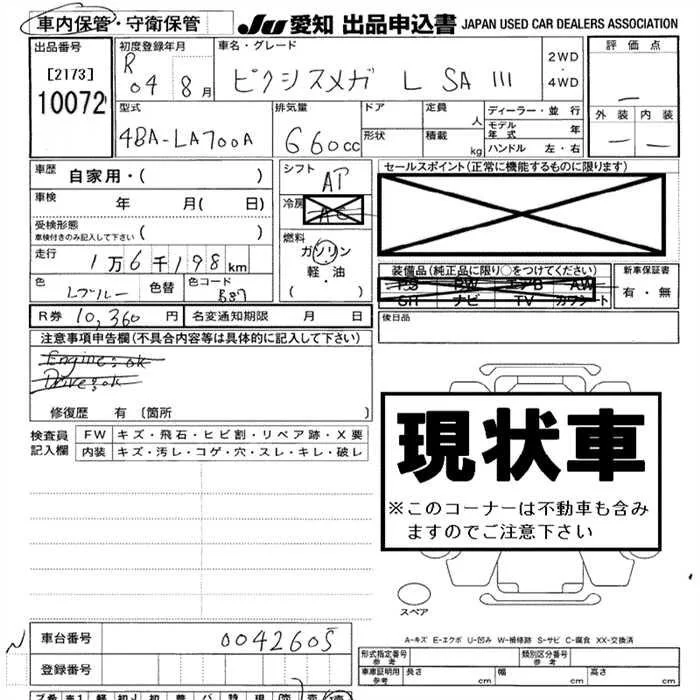 車内保管・守衛保管 JU 愛知 出品申込書 JAPAN USED CAR DEALERS ASSOCIATION
出品番号 [2173] 10072
初度登録年月 R 04 8月
車名・グレード ピクシスメガ L SA III
2WD・4WD
評価点 —
外装 — 内装 —
型式 4BA-LA700A
排気量 660cc
ドア 形状
定員 人 積載 kg
ディーラー・並行
モデル年式 年
ハンドル 左・右
車歴 自家用・( )
車検 年 月( 日)
受検形態 車検付きのみ記入して下さい ( )
走行 1万6千198km
色 Lブルー 色替 色コード B87
シフト AT
冷房 AC
燃料 ガソリン 軽・油 ( ・ )
セールスポイント(正常に機能するものに限ります)
装備品(純正品に限り○をつけてください)
P.S PW エアB AW
SH ナビ TV カワシート
新車保証書 有・無
R券 10,360円 名変通知期限 月 日
後日品
注意事項申告欄(不具合内容等は具体的に記入して下さい)
Engine:ok
Drive:ok
修復歴 有 〔箇所 〕
検査員記入欄
FW キズ・飛石・ヒビ割・リペア跡・X要
内装 キズ・汚レ・コゲ・穴・スレ・キレ・破レ
現状車
※このコーナーは不動車も含みますのでご注意下さい
スペア
A-キズ E-エクボ U-凹み W-補修跡 S-サビ C-腐食 XX-交換済
車台番号 0042605
登録番号
形式指定番号 参考 類別区分番号 参考
車庫証明用 参考 長さ cm 幅 cm 高さ cm